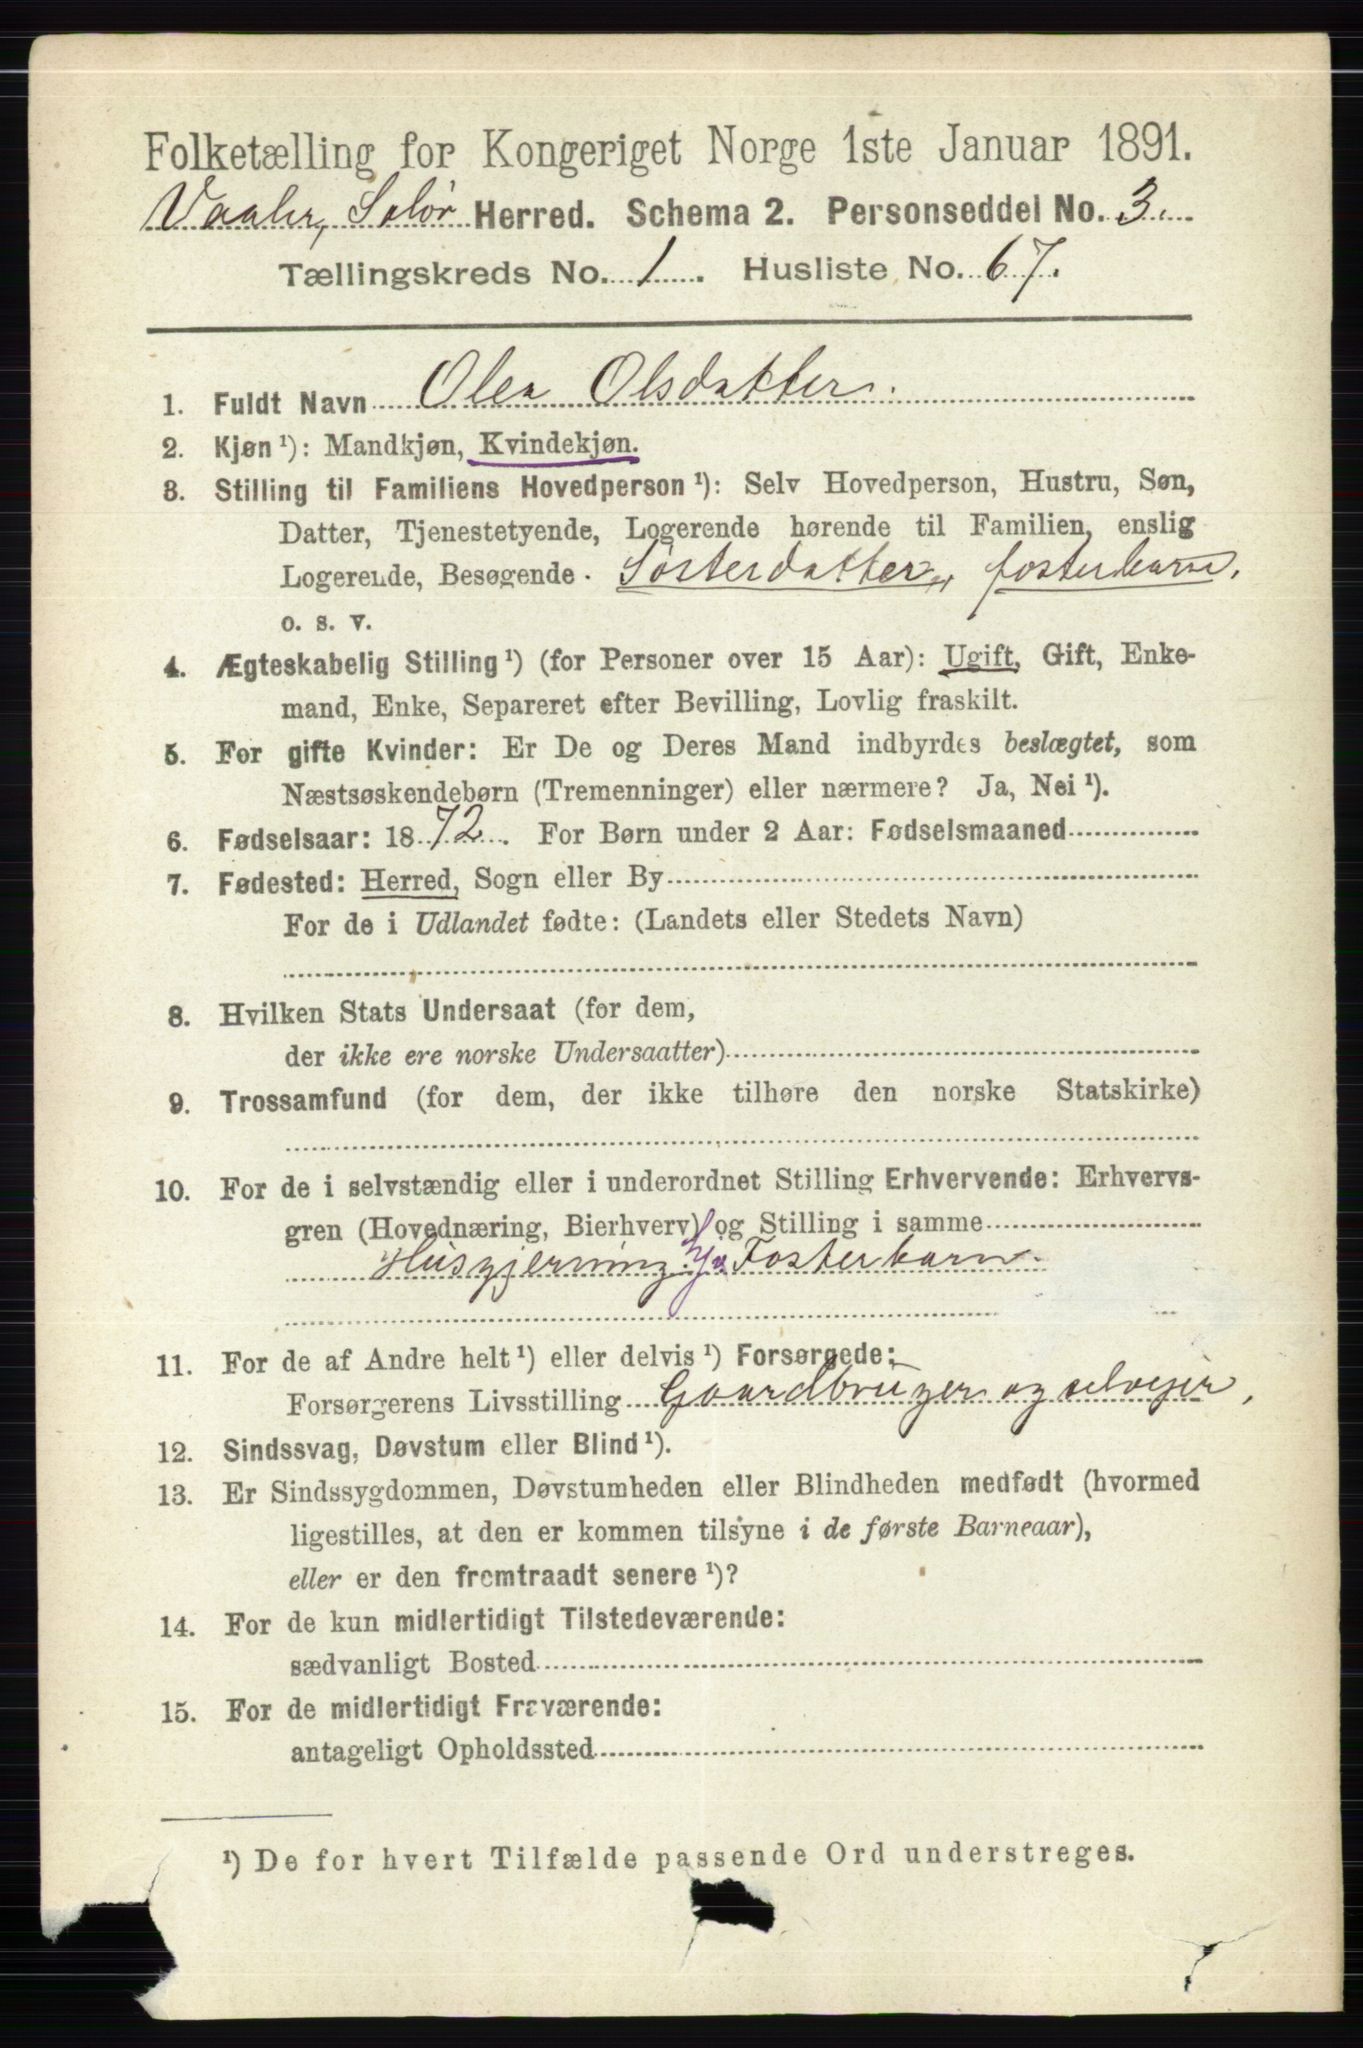 Folketælling for Kongeriget Norge 1ste Januar 1891.
Vaaler, Solør Herred. Schema 2. Personseddel No. 3.
Tællingskreds No. 1. Husliste No. 67.
1. Fuldt Navn Olea Olsdatter.
2. Kjøn ¹): Mandkjøn, Kvindekjøn.
3. Stilling til Familiens Hovedperson ¹): Selv Hovedperson, Hustru, Søn,
Datter, Tjenestetyende, Logerende hørende til Familien, enslig
Logerende, Besøgende. Søsterdatter, fosterbarn,
o. s. v.
4. Ægteskabelig Stilling ¹) (for Personer over 15 Aar): Ugift, Gift, Enke-
mand, Enke, Separeret efter Bevilling, Lovlig fraskilt.
5. For gifte Kvinder: Er De og Deres Mand indbyrdes beslægtet, som
Næstsøskendebørn (Tremenninger) eller nærmere? Ja, Nei ¹).
6. Fødselsaar: 1872. For Børn under 2 Aar: Fødselsmaaned
7. Fødested: Herred, Sogn eller By
For de i Udlandet fødte: (Landets eller Stedets Navn)
8. Hvilken Stats Undersaat (for dem,
der ikke ere norske Undersaatter)
9. Trossamfund (for dem, der ikke tilhøre den norske Statskirke)
10. For de i selvstændig eller i underordnet Stilling Erhvervende: Erhvervs-
gren (Hovednæring, Bierhverv) og Stilling i samme
Husgjerning. Fosterbarn.
11. For de af Andre helt ¹) eller delvis ¹) Forsørgede:
Forsørgerens Livsstilling Gaardbruger og selveier,
12. Sindssvag, Døvstum eller Blind ¹).
13. Er Sindssygdommen, Døvstumheden eller Blindheden medfødt (hvormed
ligestilles, at den er kommen tilsyne i de første Barneaar),
eller er den fremtraadt senere ¹)?
14. For de kun midlertidigt Tilstedeværende:
sædvanligt Bosted
15. For de midlertidigt Fraværende:
antageligt Opholdssted
¹) De for hvert Tilfælde passende Ord understreges.